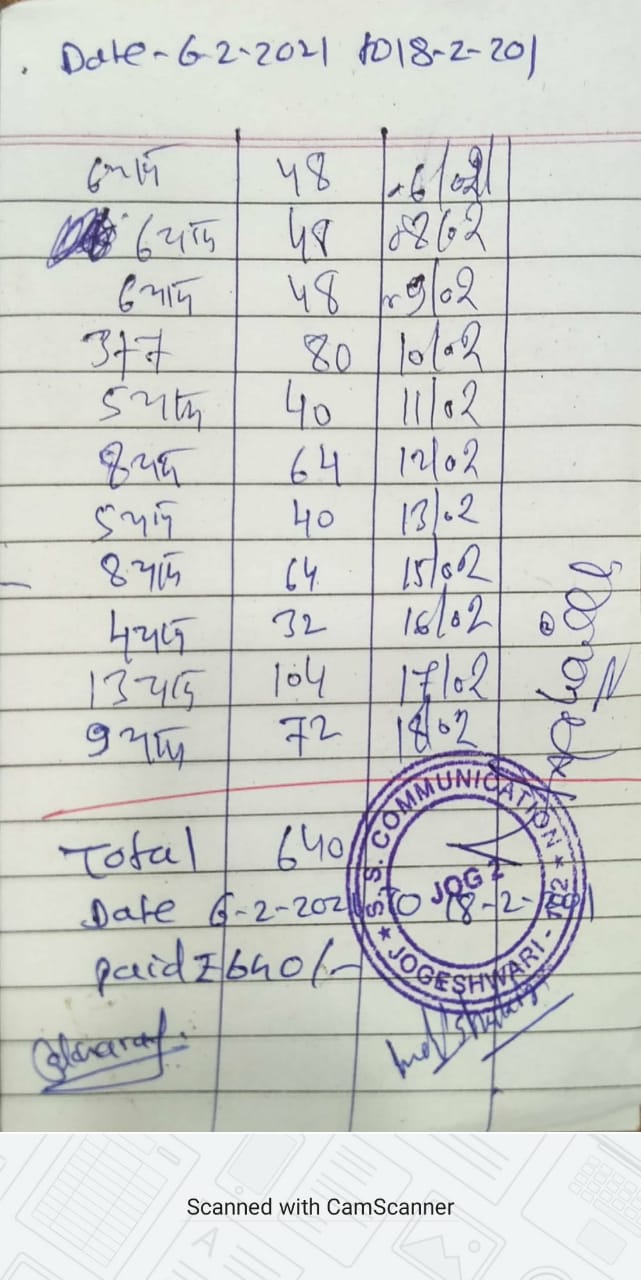 Date - 6-2-2021 to 18-2-20
6 चाय 48 6/02
6 चाय 48 8/02
6 चाय 48 9/02
80 10/02
5 चाय 40 11/02
8 चाय 64 12/02
5 चाय 40 13/02
8 चाय 64 15/02
4 चाय 32 16/02
13 चाय 104 17/02
9 चाय 72 18/02
Total 640
Date 6-2-2021 TO 18-2-
paid ₹ 640/-
S. S. COMMUNICATION
JOG 2
JOGESHWARI -
Scanned with CamScanner